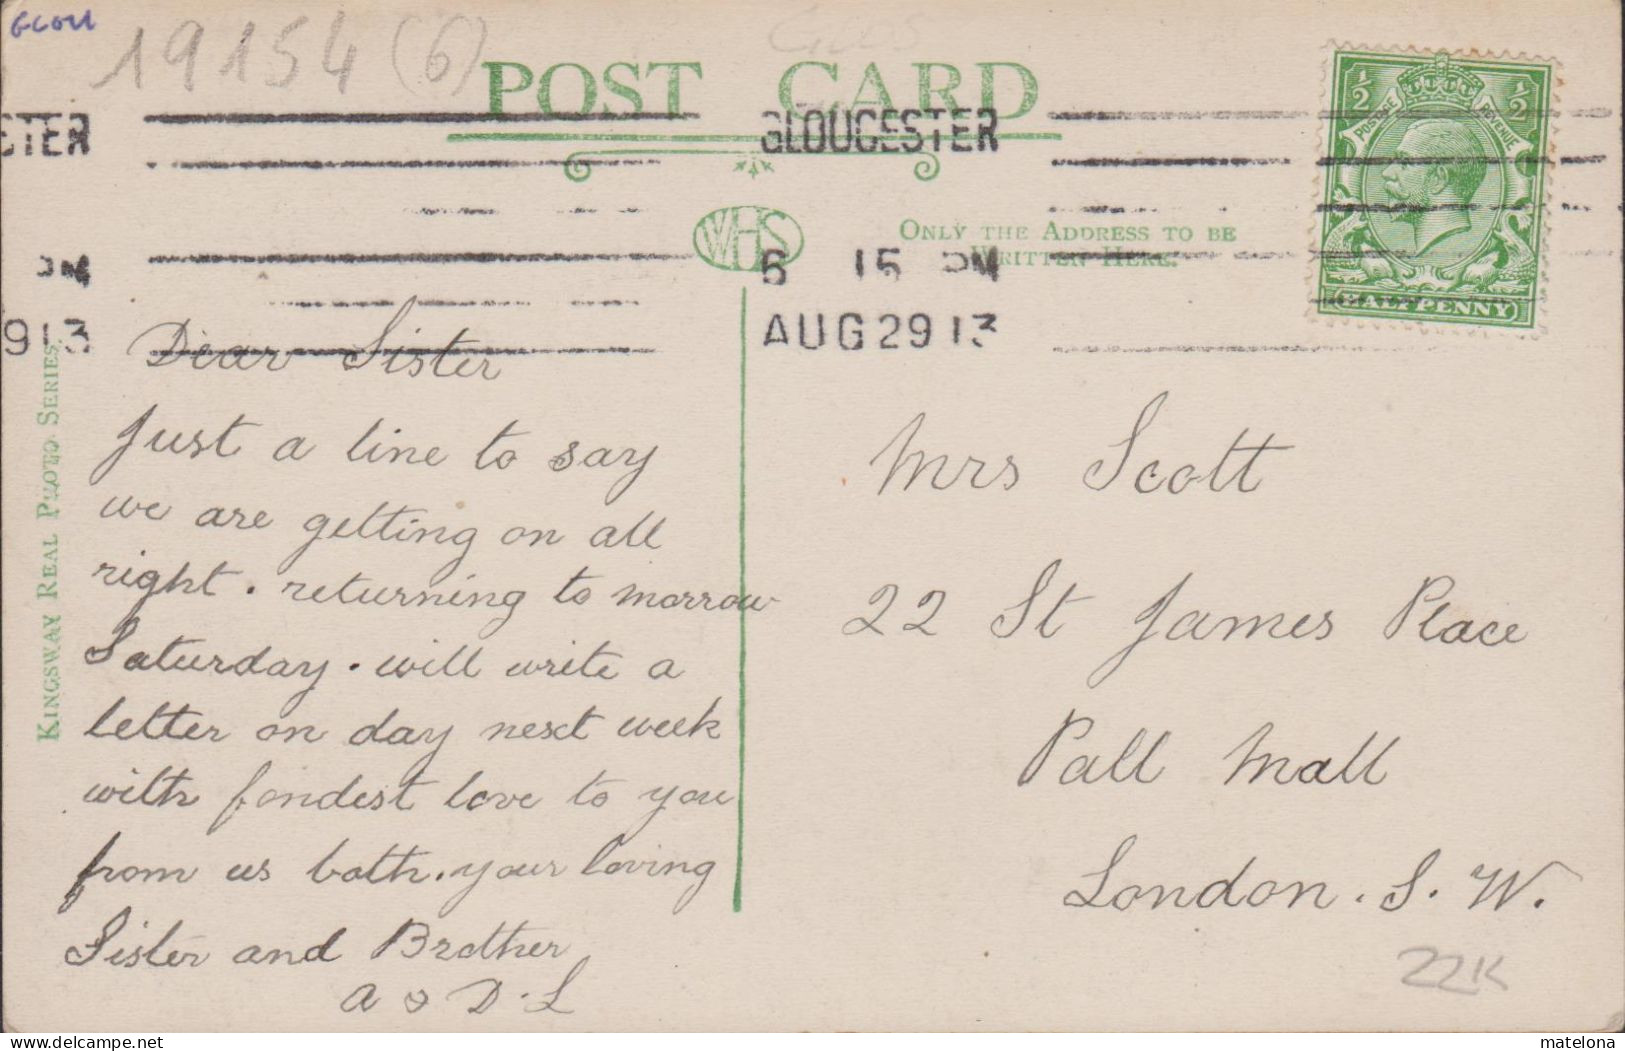 19154 (6)
POST CARD
GLOUCESTER
½ ½
POSTAGE REVENUE
HALFPENNY
WHS
ONLY THE ADDRESS TO BE
WRITTEN HERE.
6 15 PM
AUG 29 13
PM
913
KINGSWAY REAL PHOTO SERIES.
Dear Sister
Just a line to say
we are getting on all
right. returning to morrow
Saturday. will write a
letter on day next week
with fondest love to you
from us both. your loving
Sister and Brother
A & D. L
Mrs Scott
22 St James Place
Pall Mall
London. S. W.
22K
matelona